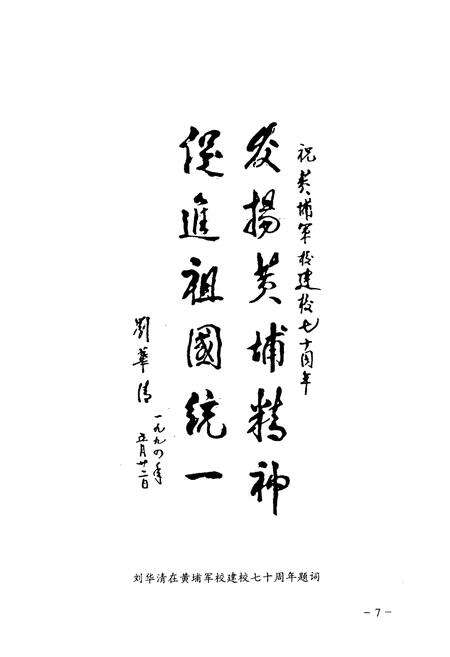 祝黄埔军校建校七十周年
发揚黄埔精神
促進祖國統一
劉華清
一九九四年
五月廿二日
刘华清在黄埔军校建校七十周年题词
－7－